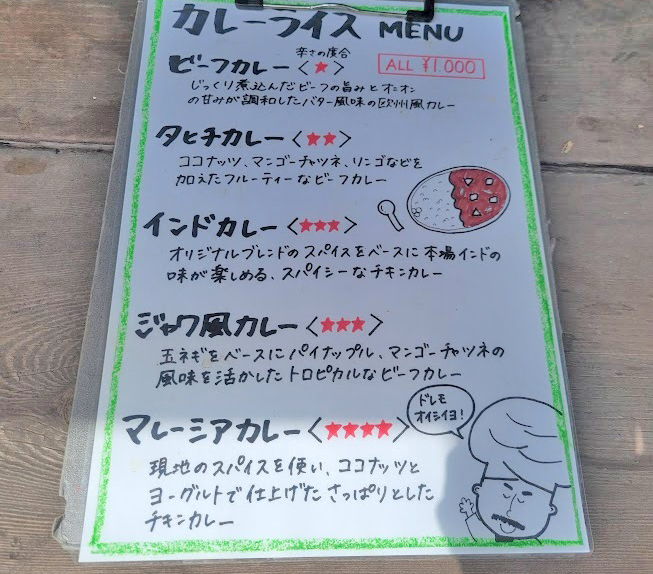 カレーライス MENU
辛さの度合
ビーフカレー〈★〉 ALL ¥1.000
じっくり煮込んだビーフの旨みとオニオン
の甘みが調和したバター風味の欧州風カレー
タヒチカレー〈★★〉
ココナッツ、マンゴーチャツネ、リンゴなどを
加えたフルーティーなビーフカレー
インドカレー〈★★★〉
オリジナルブレンドのスパイスをベースに本場インドの
味が楽しめる、スパイシーなチキンカレー
ジャワ風カレー〈★★★〉
玉ネギをベースにパイナップル、マンゴーチャツネの
風味を活かしたトロピカルなビーフカレー
ドレモ
オイシイヨ!
マレーシアカレー〈★★★★〉
現地のスパイスを使い、ココナッツと
ヨーグルトで仕上げたさっぱりとした
チキンカレー